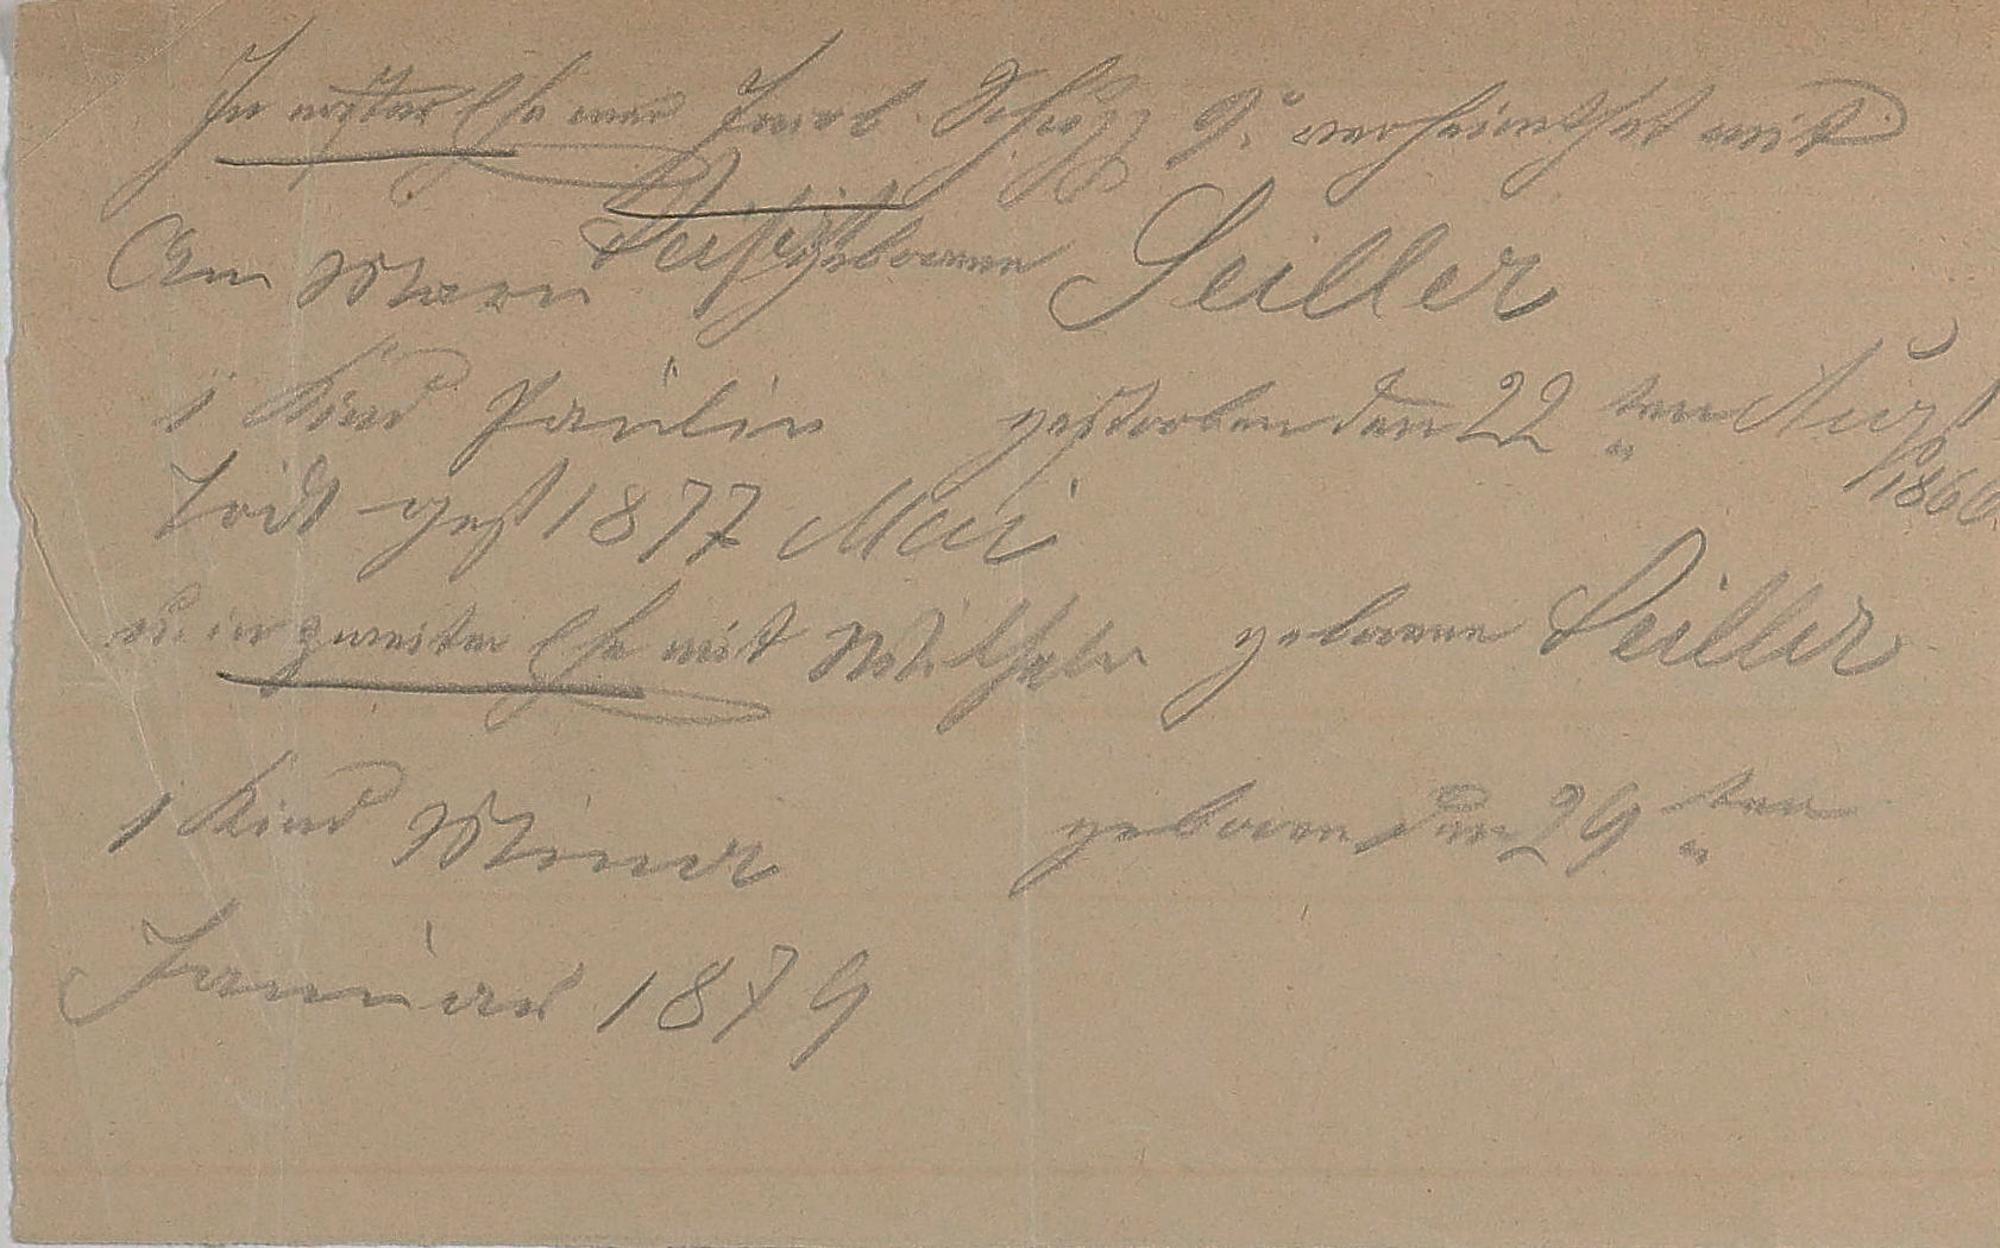 In erster Ehe war Jacob verheirathet mit
An Mari geborene Seiller
1 Kind Paulin gestorben den 22 ten Augst 1860
Todt gest 1877 Mai
u. in zweiter Ehe mit Wilhelm geborene Seiller
1 Kind geboren den 29 ten
Januar 1879